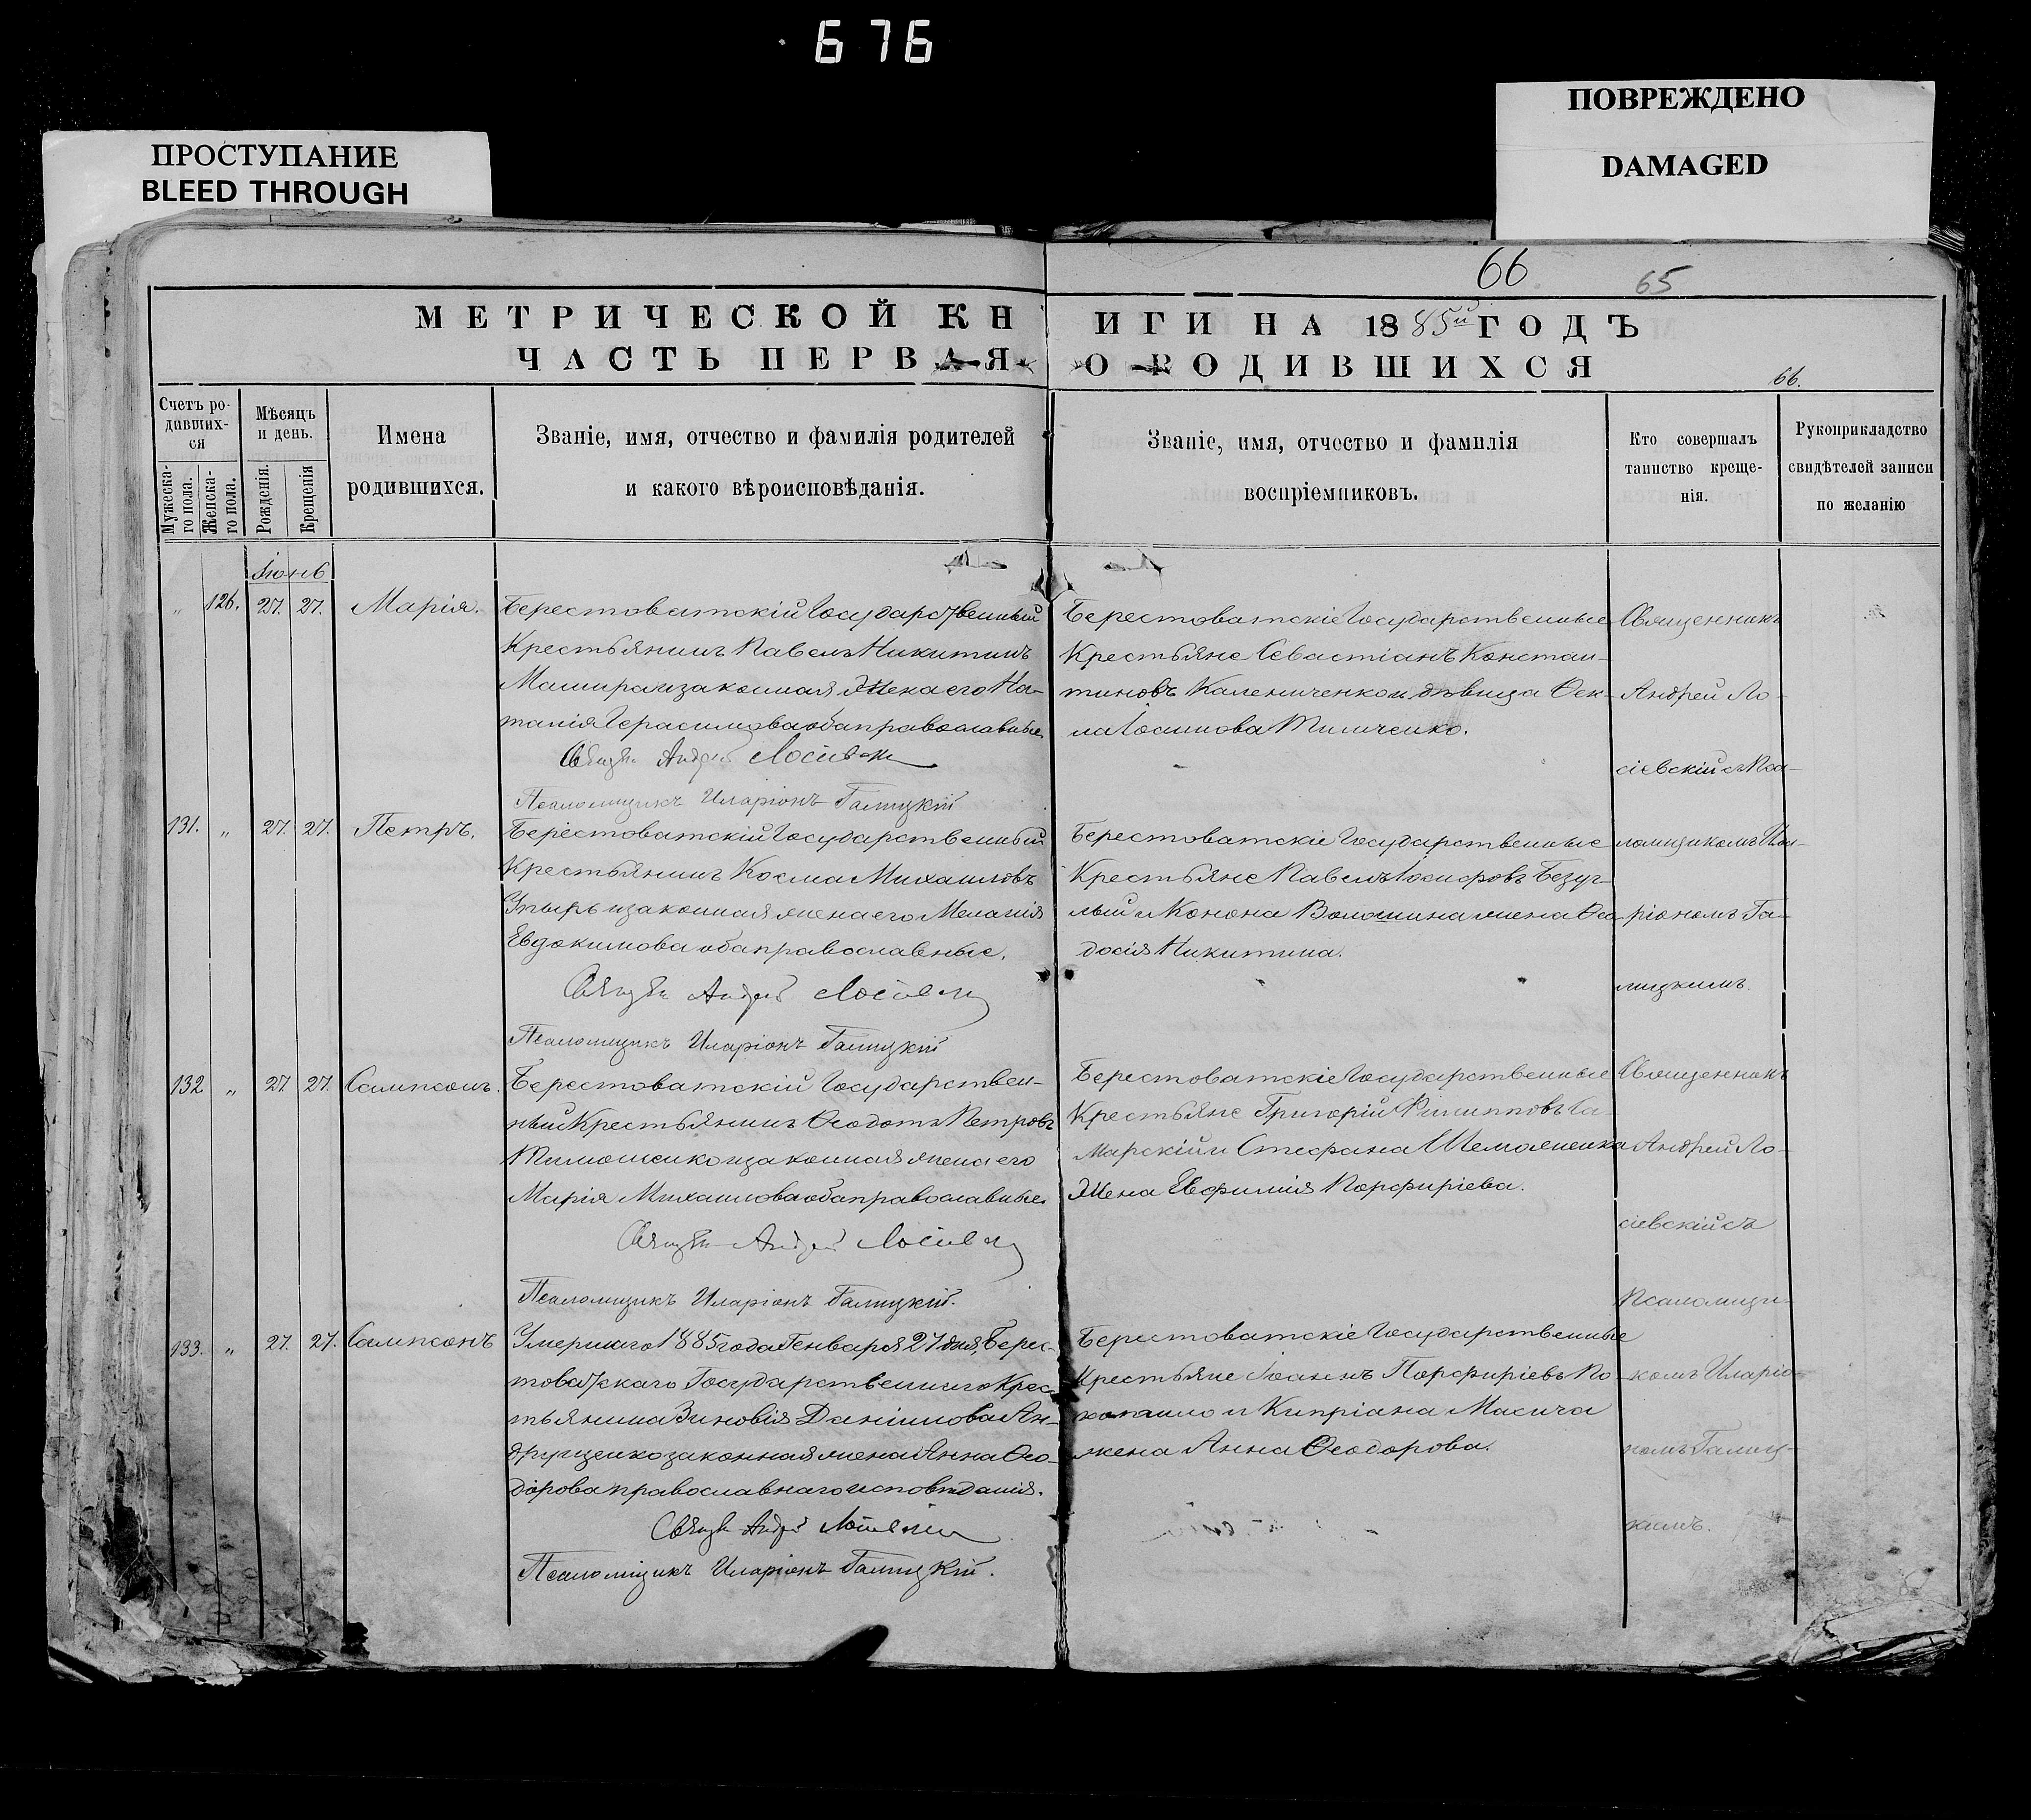 676
ПОВРЕЖДЕНО
DAMAGED
ПРОСТУПАНИЕ
BLEED THROUGH
66
65
МЕТРИЧЕСКОЙ КН
ЧАСТЬ ПЕРВАЯ
ИГИ НА 1885й ГОДЪ
О РОДИВШИХСЯ
66.
Счетъ ро-
дивших-
ся
Мужеска-
го пола.
Женска-
го пола.
Мѣсяцъ
и день.
Рожденія.
Крещенія
Имена
родившихся.
Званіе, имя, отчество и фамилія родителей
и какого вѣроисповѣданія.
Званіе, имя, отчество и фамилія
воспріемниковъ.
Кто совершалъ
таинство креще-
нія.
Рукоприкладство
свидѣтелей записи
по желанію
Іюнь
" 126. 27. 27. Марія.
Берестоватскій Государственный
Крестьянинъ Павелъ Никитинъ
и законная жена его На-
талія Герасимова оба православные.
Андрей
Псаломщикъ Иларіонъ Галицкій
Берестоватскіе Государственные
Крестьяне Севастіанъ Констан-
тиновъ Калениченко и дѣвица Ѳек-
ла
Священникъ
Андрей Ло-
сіевскій съ Пса-
ломщикомъ Ила-
ріономъ Га-
лицкимъ.
131. " 27. 27. Петръ.
Берестоватскій Государственный
Крестьянинъ Косма Михаиловъ
Упырь и законная жена его Меланія
Евдокимова оба православные.
Андрей
Псаломщикъ Иларіонъ Галицкій
Берестоватскіе Государственные
Крестьяне Павелъ Іосифовъ Безуг-
лый и Конона Волошина жена Ѳео-
досія Никитина.
132 " 27 27. Сампсонъ.
Берестоватскій Государствен-
ный Крестьянинъ Ѳеодотъ Петровъ
Тимошенко и законная жена его
Марія Михаилова оба православные.
Андрей
Псаломщикъ Иларіонъ Галицкій.
Берестоватскіе Государственные
Крестьяне Григорій Филипповъ Са-
марскій и Стефана Шемояненка
Жена Евфимія Порфиріева.
Священникъ
Андрей Ло-
сіевскій съ
Псаломщи-
комъ Иларіо-
номъ Галиц-
кимъ.
133. " 27. 27. Сампсонъ
Умершаго 1885 года Генваря 27 дня, Берес-
товатскаго Государственнаго Крес-
тьянина Зиновія Даніилова Ан-
друщенко законная жена Анна Ѳео-
дорова православнаго исповѣданія.
Андрей
Псаломщикъ Иларіонъ Галицкій.
Берестоватскіе Государственные
Крестьяне Іоаннъ Порфиріевъ По-
и Кипріана Масича
жена Анна Ѳеодорова.